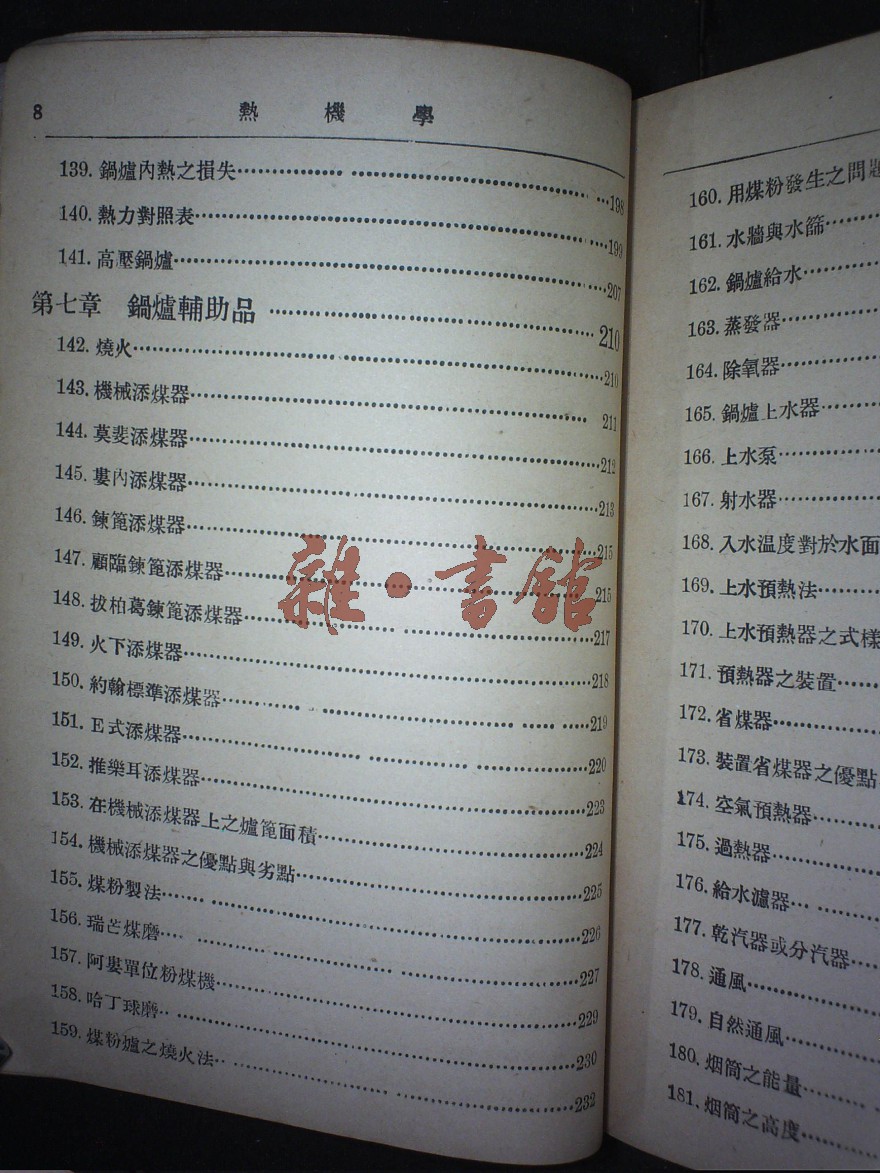 8 熱機學
139. 鍋爐內熱之損失 198
140. 熱力對照表 199
141. 高壓鍋爐 207
第七章 鍋爐輔助品 210
142. 燒火 210
143. 機械添煤器 211
144. 莫斐添煤器 212
145. 婁內添煤器 213
146. 鍊箆添煤器 215
147. 顧臨鍊箆添煤器 215
148. 拔柏葛鍊箆添煤器 217
149. 火下添煤器 218
150. 約翰標準添煤器 219
151. E式添煤器 220
152. 推樂耳添煤器 223
153. 在機械添煤器上之爐箆面積 224
154. 機械添煤器之優點與劣點 225
155. 煤粉製法 226
156. 瑞芒煤磨 227
157. 阿婁單位粉煤機 229
158. 哈丁球磨 230
159. 煤粉爐之燒火法 232
雜·書館
160. 用煤粉發生之問題
161. 水牆與水篩
162. 鍋爐給水
163. 蒸發器
164. 除氧器
165. 鍋爐上水器
166. 上水泵
167. 射水器
168. 入水温度對於水面
169. 上水預熱法
170. 上水預熱器之式樣
171. 預熱器之裝置
172. 省煤器
173. 裝置省煤器之優點
174. 空氣預熱器
175. 過熱器
176. 給水濾器
177. 乾汽器或分汽器
178. 通風
179. 自然通風
180. 烟筒之能量
181. 烟筒之高度